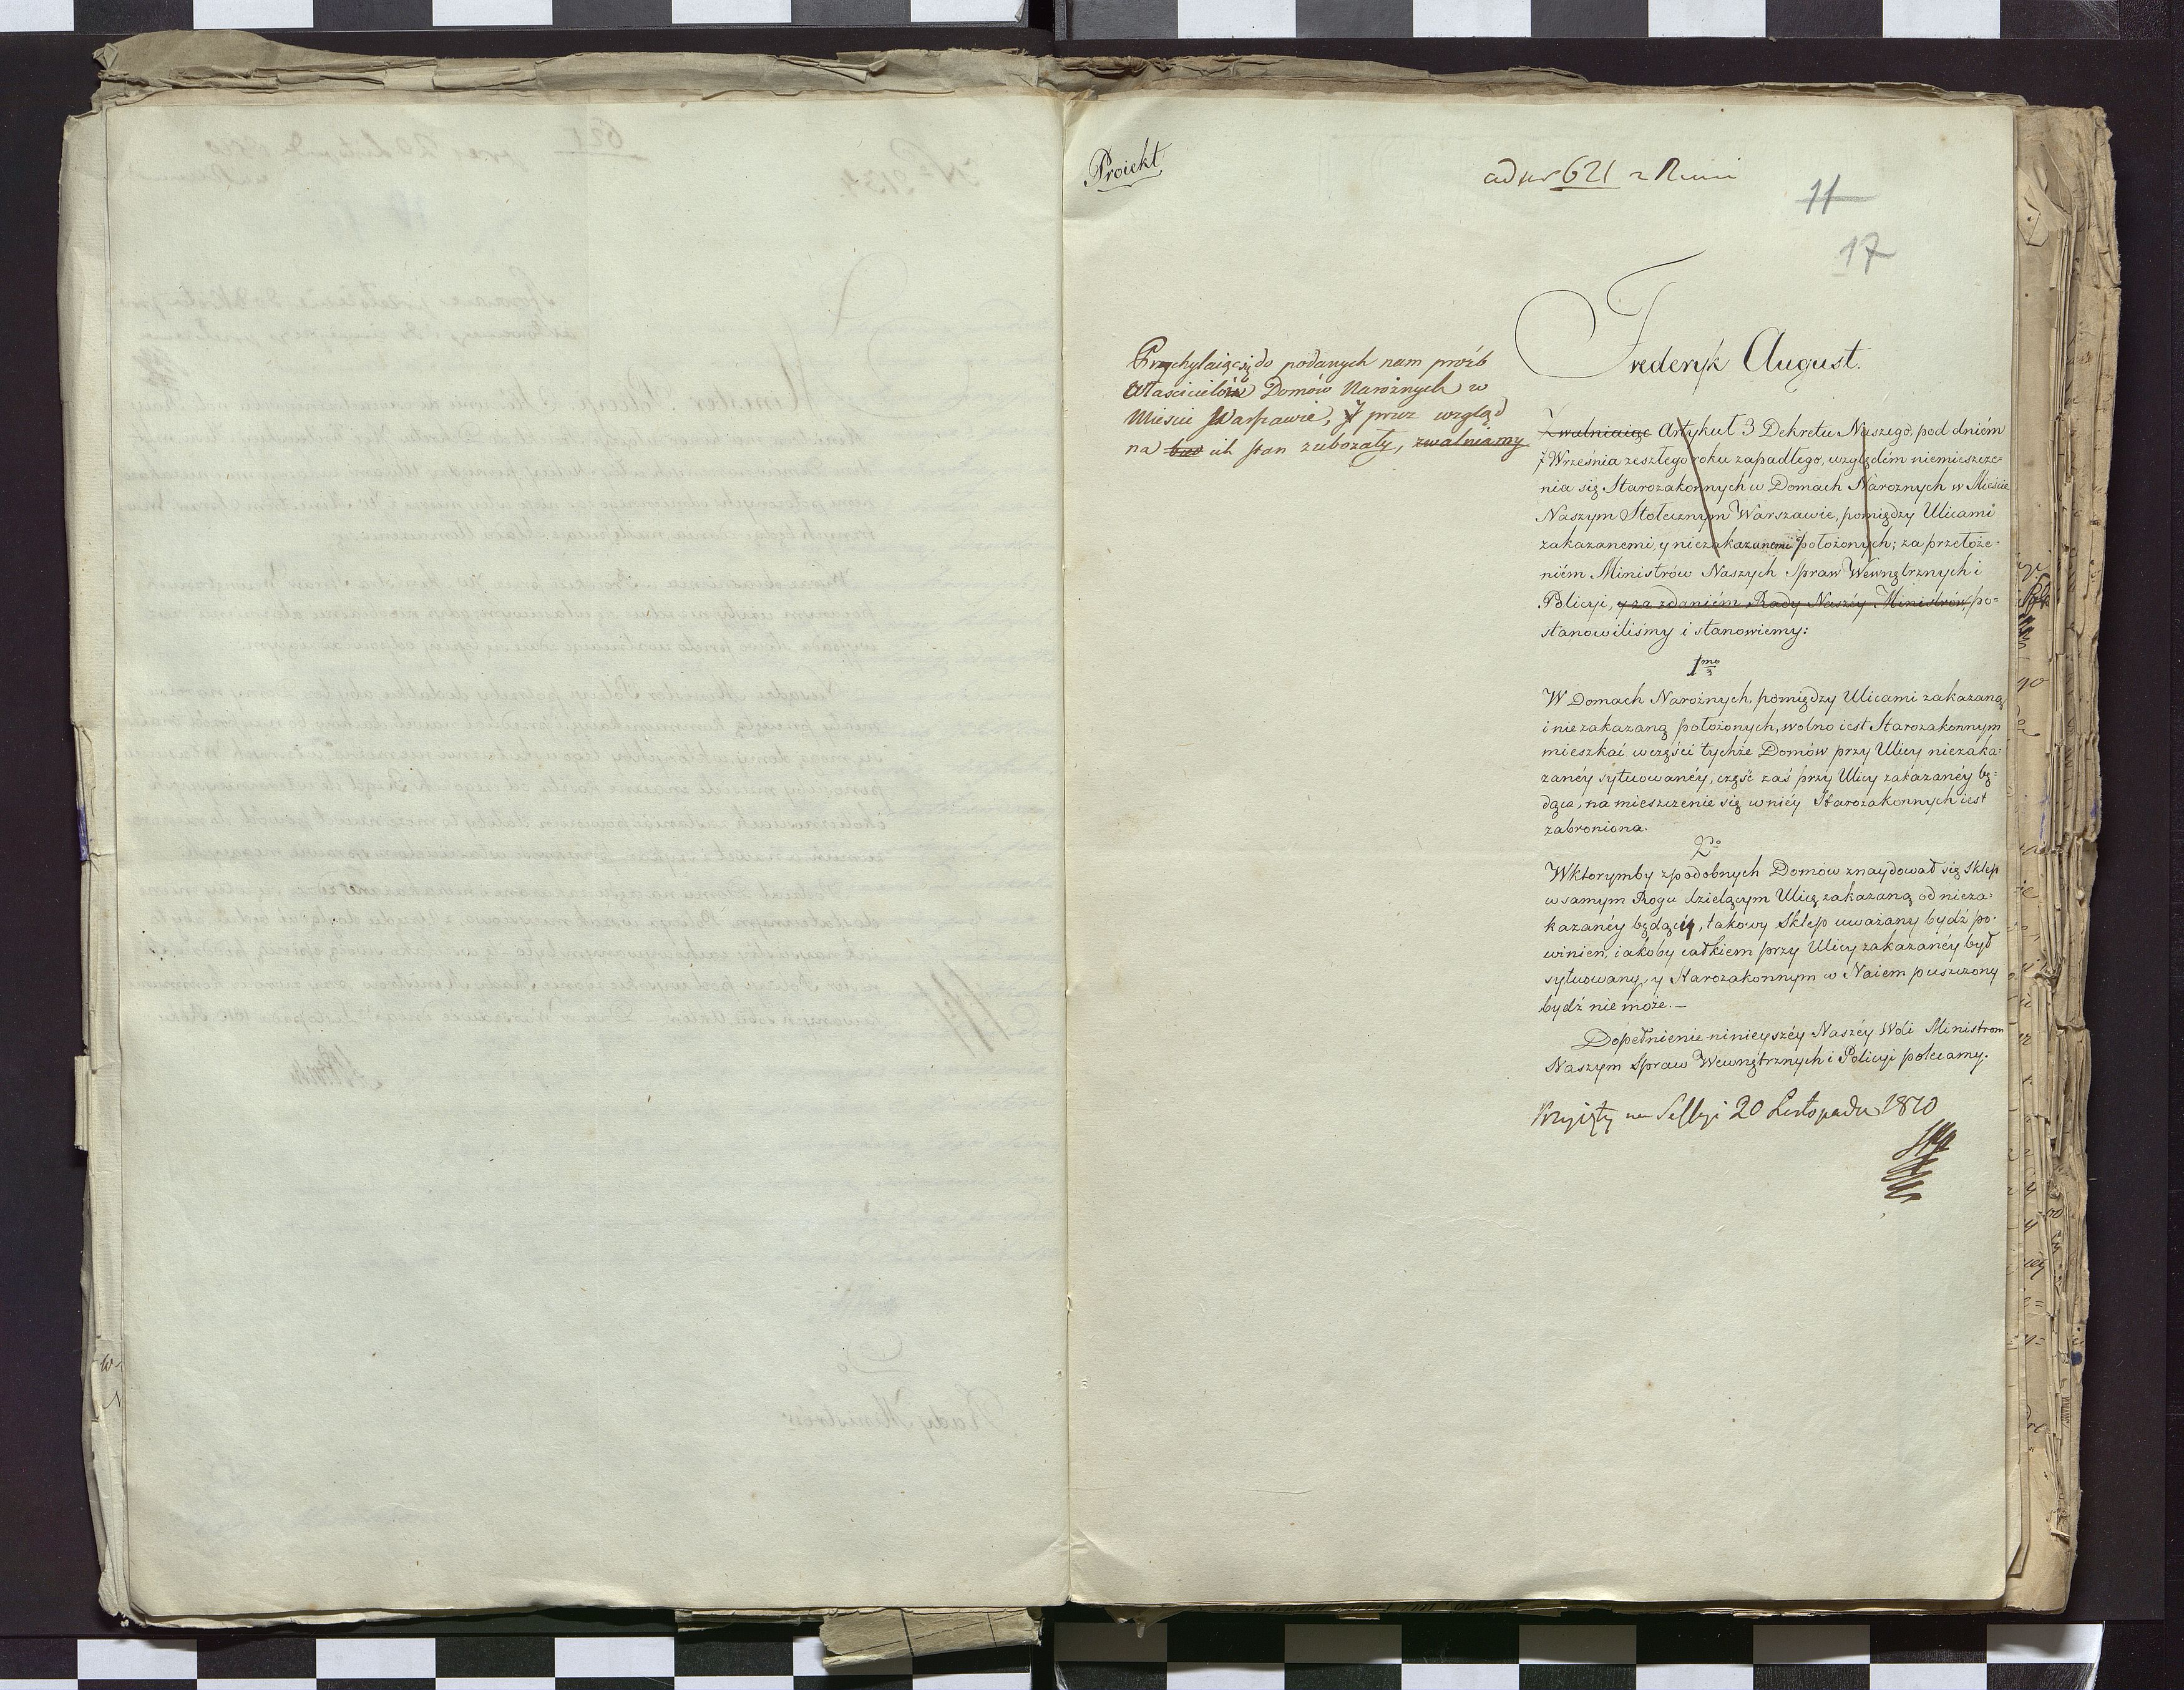 Proiekt
ad nr 621 z Rmi
11
17
Frederyk August.
Przychylaiąc się do podanych nam proźb
Właścicielów Domów Narożnych w
Mieście Warszawie, y przez wzgląd
na ich stan zubożały, zwalniamy
Zwalniaiąc Artykuł 3 Dekretu Naszego, pod dniém
7 Września zeszłego roku zapadłego, względém niemieszcze-
nia się Starozakonnych w Domach Narożnych w Mieście
Naszym Stołecznym Warszawie, pomiędzy Ulicami
zakazanemi, y niezakazanemi położonych; za przełoże-
niém Ministrów Naszych Spraw Wewnętrznych i
Policyi, y za zdaniém Rady Naszéy Ministrów, po-
stanowiliśmy i stanowiemy:
1mo
W Domach Narożnych, pomiędzy Ulicami zakazaną
i niezakazaną położonych, wolno iest Starozakonnym
mieszkać w części tychże Domów przy Ulicy niezaka-
zanéy sytuowanéy, część zaś przy Ulicy zakazanéy bę-
dąca, na mieszczenie się w niéy Starozakonnych iest
zabroniona.
2do
W którymby z podobnych Domów znaydował się Sklep
w samym Rogu dzielącym Ulicę zakazaną od nieza-
kazanéy będący, takowy Sklep uważany bydź po-
winien, iakoby całkiem przy Ulicy zakazanéy był
sytuowany, y Starozakonnym w Naiem puszczony
bydź nie może. —
Dopełnienie ninieyszéy Naszéy Woli Ministrom
Naszym Spraw Wewnętrznych i Policyi polecamy.
Przyięty na Sessyi 20 Listopada 1810